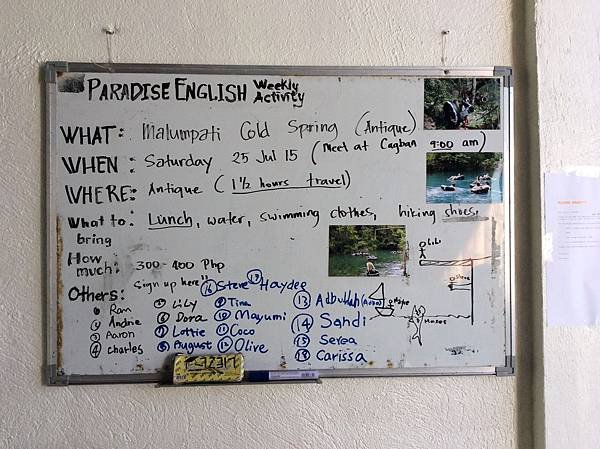 PARADISE ENGLISH Weekly Activity
WHAT: Malumpati Cold Spring (Antique)
WHEN: Saturday 25 Jul 15 (Meet at Cagban 9:00 am)
WHERE: Antique (1 1/2 hours travel)
What to bring: Lunch, water, swimming clothes, hiking shoes.
How much: 300-400 Php
Others: Sign up here!!
Ram
Andrie
3 Aaron
4 charles
5 Lily
6 Dora
7 Lottie
8 August
9 Tina
10 Mayumi
11 Coco
12 Olive
13 Adbullah
14 Sandi
15 Serea
Carissa
16 Steve
Haydee
Lili
Steve
Moses